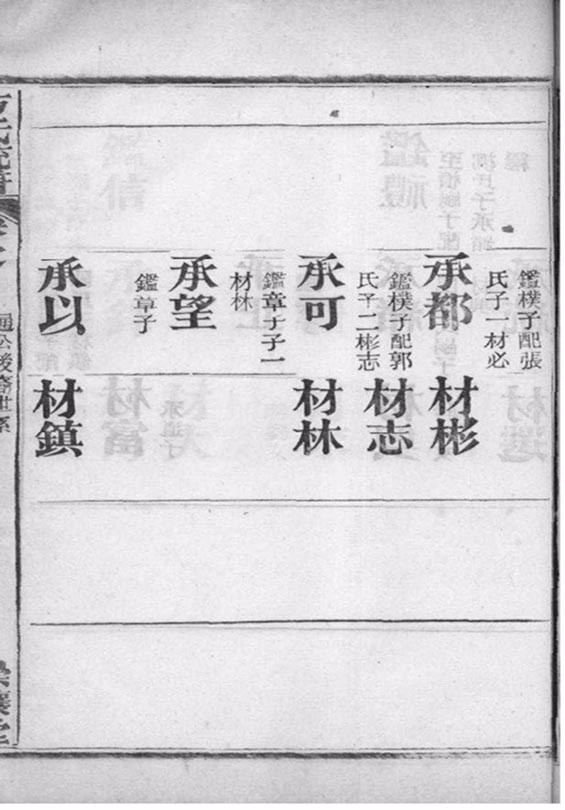 鑑樸子配張
氏子一材必
承都
鑑樸子配郭
氏子二彬志
承可
鑑章子子一
材林
承望
鑑章子
承以
材彬
材志
材林
材鎮
公後裔世系